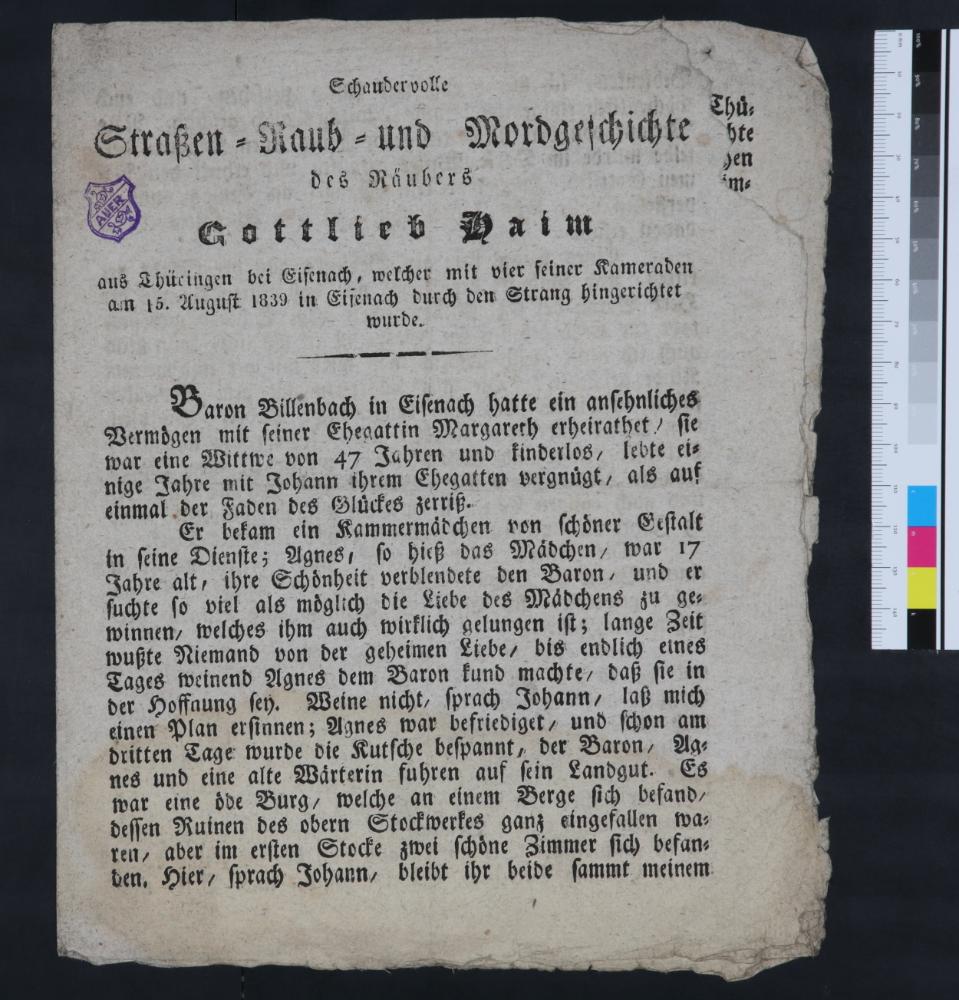 Schaudervolle
Straßen-Raub-und Mordgeschichte
des Räubers
Gottlieb Haim
aus Thüringen bei Eisenach, welcher mit vier seiner Kameraden
am 15. August 1839 in Eisenach durch den Strang hingerichtet
wurde.
Thü-
hte
hen
m-
AUER
Baron Billenbach in Eisenach hatte ein ansehnliches
Vermögen mit seiner Ehegattin Margareth erheirathet/ sie
war eine Wittwe von 47 Jahren und kinderlos/ lebte ei-
nige Jahre mit Johann ihrem Ehegatten vergnügt/ als auf
einmal der Faden des Glückes zerriß.
Er bekam ein Kammermädchen von schöner Gestalt
in seine Dienste; Agnes/ so hieß das Mädchen/ war 17
Jahre alt/ ihre Schönheit verblendete den Baron/ und er
suchte so viel als möglich die Liebe des Mädchens zu ge-
winnen/ welches ihm auch wirklich gelungen ist; lange Zeit
wußte Niemand von der geheimen Liebe/ bis endlich eines
Tages weinend Agnes dem Baron kund machte/ daß sie in
der Hoffnung sey. Weine nicht/ sprach Johann/ laß mich
einen Plan ersinnen; Agnes war befriediget/ und schon am
dritten Tage wurde die Kutsche bespannt/ der Baron/ Ag-
nes und eine alte Wärterin fuhren auf sein Landgut. Es
war eine öde Burg/ welche an einem Berge sich befand/
dessen Ruinen des obern Stockwerkes ganz eingefallen wa-
ren/ aber im ersten Stocke zwei schöne Zimmer sich befan-
den. Hier/ sprach Johann/ bleibt ihr beide sammt meinem